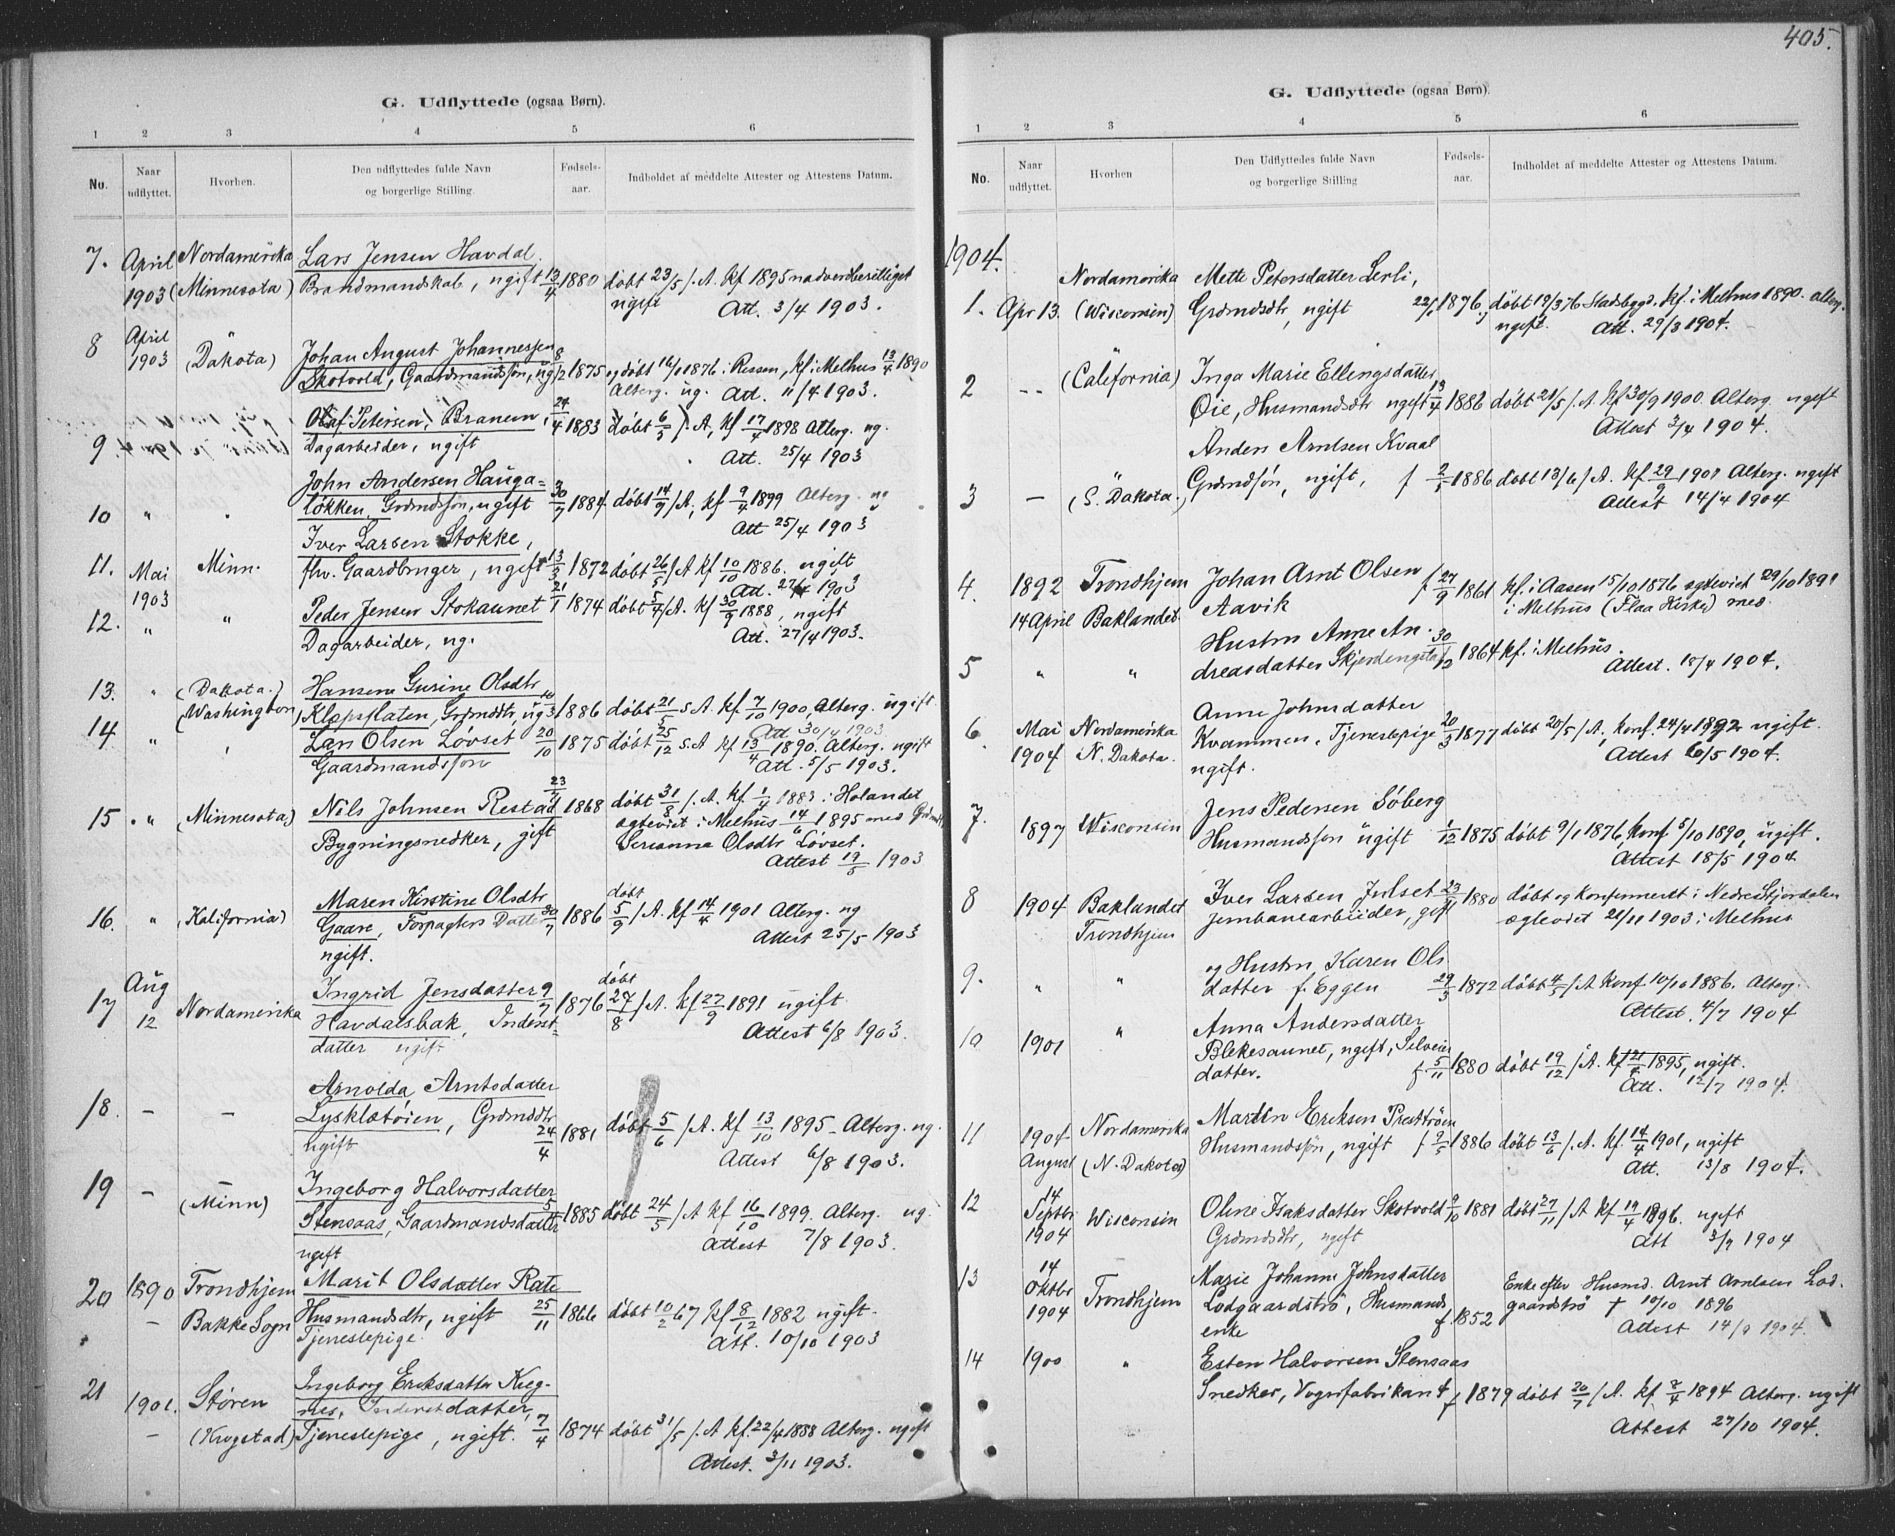 405.
G. Udflyttede (ogsaa Børn).
1 2 3 4 5 6
No. Naar udflyttet. Hvorhen. Den udflyttedes fulde Navn og borgerlige Stilling. Fødsels-aar. Indholdet af meddelte Attester og Attestens Datum.
7. April Nordamerika Lars Jensen Havdal.
1903 (Minnesota) Brandmandskab, ugift 13/4 1880 døbt 23/5 s. A. kf 1895 nadverdberettiget
ugift Att. 3/4 1903.
8 April 1903 " (Dakota) Johan August Johannessen
Skotvold, Gaardmandssøn, ug 8/12 1875 døbt 16/1 1876 i Rissen, kf. i Melhus 13/4 1890
Alterg. ug. Att. 11/4 1903.
9. Olaf Petersen Braneen, 24/4 1883 døbt 6/5 s. A, kf 17/4 1898 Alterg. ug.
Dagarbeider, ugift Att. 25/4 1903
10 " " John Andersen Hauga=
løkken, Grdmdssøn, ugift 30/7 1884 døbt 14/9 s A, kf 9/4 1899 Alterg. ug
Att 25/4 1903
11. Mai 1903 Minn. Iver Larsen Stokke,
fhv. Gaardbruger, ugift 13/3 1872 døbt 26/5 s A kf 10/10 1886. ugift
Att. 27/4 1903
12. " " Peder Jensen Stokaunet 21/1 1874 døbt 5/4 s A. kf 30/9 1888, ugift
Dagarbeider, ug. Att. 27/4 1903.
13. " (Dakota.) Hansine Gurine Olsdtr
(Washington) Klepsflaten, Grdmdsdtr, ug 10/3 1886 døbt 21/5 s. A. kf 7/10 1900, Alterg. ugift
Att. 30/4 1903
14 " " Lars Olsen Løvset 20/10 1875 døbt 25/12 s. A kf 13/4 1890. Alterg. ugift
Gaardmandssøn Att. 5/5 1903.
15 " (Minnesota) Nils Johnsen Restad 23/7 1868 døbt 31/8 s. A. kf. 1883 i Holandet
Bygningsnedker, gift ægteviet i Melhus 14/6 1895 med Grdmdt
Serianna Olsdtr Løvset.
Attest 19/5 1903
16. " (Kalifornia) Maren Kirstine Olsdtr
Gaare, Forpagters Datter 30/7 1886 døbt 5/9 s A. kf 14/4 1901 Alterg. ug
ugift. Attest 25/5 1903
17 Aug 12 Nordamerika Ingrid Jensdatter 9/7 1876 døbt 27/8 s A. kf 27/9 1891 ugift.
Havdalsbak, Inderst-
datter ugift Attest 6/8 1903.
18. – – Arnolda Arntsdatter
Lysklætøien, Grdmdsdtr
ugift 24/4 1881 døbt 5/6 s A. kf 13/10 1895 – Alterg. ug.
Attest 6/8 1903.
19 – – (Minn) Ingeborg Halvorsdatter
Stensaas, Gaardmandsdatter 5/ 1885 døbt 24/5 s A kf 16/10 1899. Alterg. ug.
ugift Attest 7/8 1903.
20 1890 Trondhjem Marit Olsdatter Rate
– Bakke Sogn Husmandsdtr, ugift 25/11 1866 døbt 10/2 67 kf 8/12 1882 ugift.
Tjenestepige. Att. 10/10 1903
21 1901. Støren Ingeborg Eriksdatter Kreg-
nes, Inderstdatter,
– (Krogstad) Tjenestepige, ugift. 7/4 1874 døbt 31/5 s. A kf. 22/4 1888 Alterg. ugift
Attest. 3/11 1903.
G. Udflyttede (ogsaa Børn).
1 2 3 4 5 6
No. Naar udflyttet. Hvorhen Den Udflyttedes fulde Navn og borgerlige Stilling Fødsels-aar. Indholdet af meddelte Attester og Attestens Datum.
1904.
1. Apr 13. Nordamerika (Wisconsin) Mette Petersdatter Lerli,
Grdmdsdtr, ugift 22/1 1876, døbt 19/3 76 Stadsbygd. kf. i Melhus 1890. Alterg.
ugift. Att. 29/3 1904.
2 -- " (California) Inga Marie Ellingsdatter
Øie, Husmandsdtr ugift 13/4 1886 døbt 21/5 s. A. kf 30/9 1900. Alterg. ugift
Attest 3/4 1904.
3 – " (S. Dakota.) Anders Arntsen Kvaal
Grdmdsøn, ugift, f 1886 døbt 13/6 s A. kf 29/9 1901 Alterg. ugift
Attest 14/4 1904
4. 1892 Trondhjem Johan Arnt Olsen f 27/9 1861 kf. i Aasen 15/10 1876 ægteviet 29/10 1891
14 April Baklandet Aavik i Melhus (Flaa Kirke) med.
5 " " Hustru Anne An-
dreasdatter Skjerdengstad 30/12 1864 kf. i Melhus.
Attest. 18/4 1904.
6. Mai Nordamerika Anne Johnsdatter
1904 N. Dakota. Kvammen, Tjenestepige 20/3 1877 døbt 20/5 s A, konf. 24/4 1892 ugift.
ugift. Attest 6/5 1904.
7. 1897 Wisconsin Jens Pedersen Søberg
Husmandssøn ugift 1/12 1875 døbt 9/1 1876, konf. 5/10 1890, ugift.
Attest 18/5 1904
8 1904 Baklandet Iver Larsen Julset 23/ 1880 døbt og konfirmeret i Nedre Stjørdalen
Trondhjem jernbanearbeider, gift ægteviet 21/11 1903 i Melhus
9. " " og Hustru Karen Ols
datter f. Eggen 29/3 1872 døbt 4/5 s A konf 10/10 1886. Alterg.
Attest. 4/7 1904
10 1901 " Anna Andersdatter
Blekesaunet, ugift, Selveier
datter. f. 5/11 1880 døbt 19/12 s A. kf 21/4 1895, ugift.
Att. 12/7 1904.
11 1904 August Nordamerika (N. Dakota) Martin Eriksen Prestrøen
Husmandssøn, ugift f 1886 døbt 13/6 s. A. kf. 14/4 1901, ugift
Att. 13/8 1904.
12 14 Septbr 1904 Wisconsin Oline Isaksdatter Skotvold 9/10 1881 døbt 27/11 s A kf 19/4 1896. ugift
Grdmdsdtr, ugift Att 3/9 1904
13 14 Oktbr 1904 Trondhjem Marie Johanne Johnsdatter Enke efter Husmd. Arnt Arntsen Lod-
Lodgaardstrø, Husmands, f 1852 gaardstrø † 10/10 1896
enke Attest 14/9 1904.
14 1900 " Esten Halvorsen Stensaas
Snedker, Vognfabrikant f 1879 døbt 20/7 s A. kf 2/4 1894 Alterg. ugift
Attest 27/10 1904.